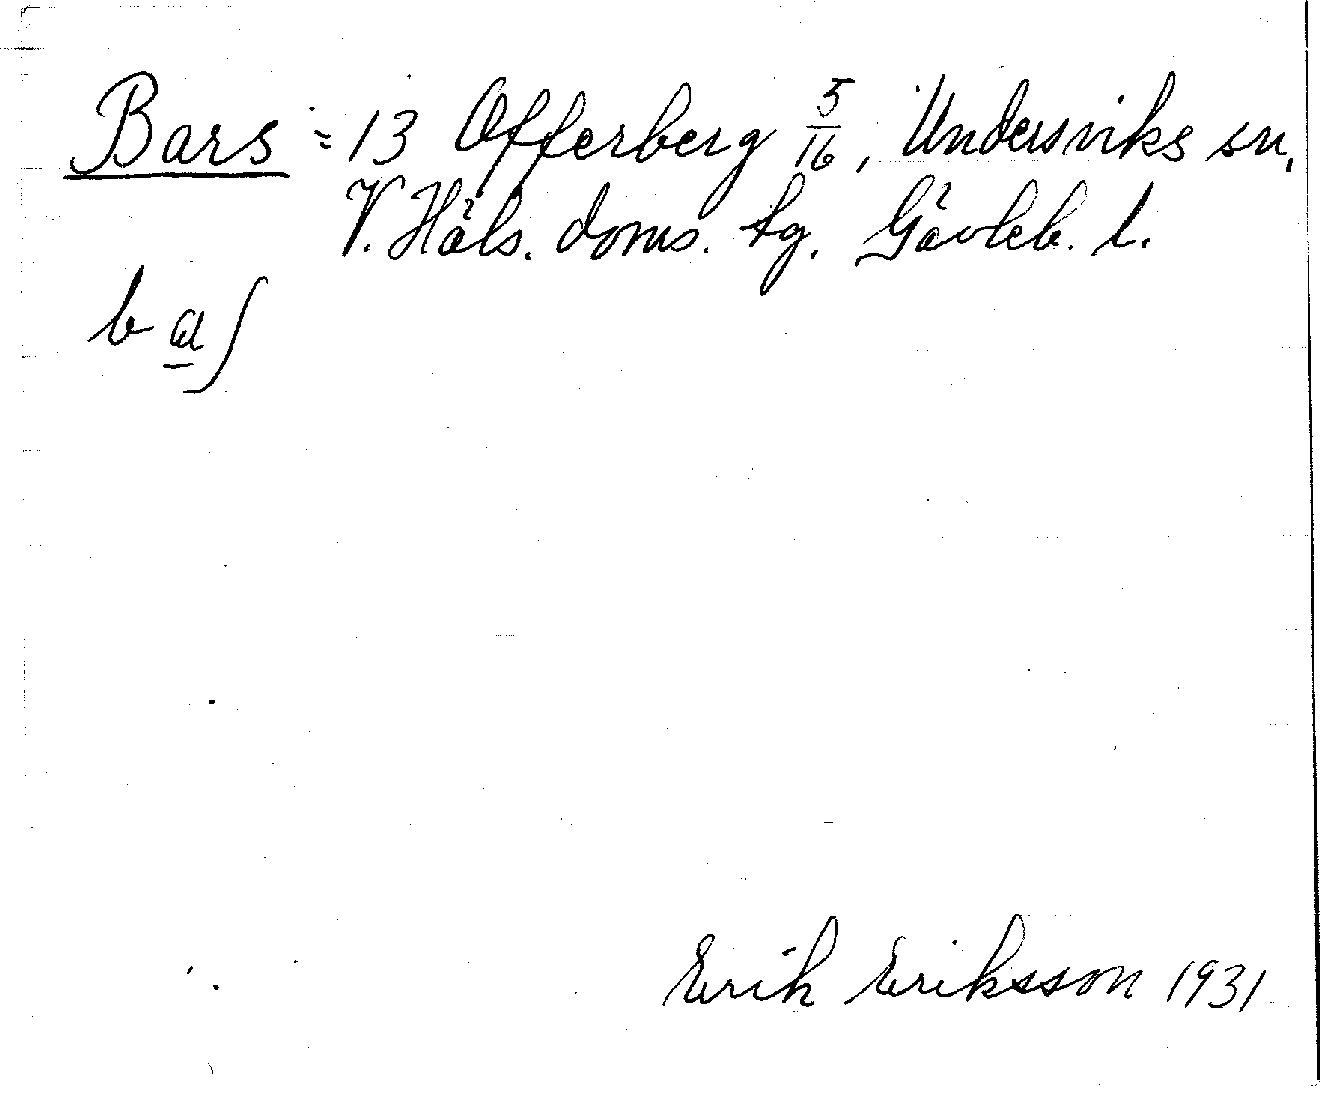 Bars = 13 Offerberg 5/16, Undersviks sn,
V. Häls. doms. tg. Gävleb. l.
ba̲ʃ
Erik Eriksson 1931